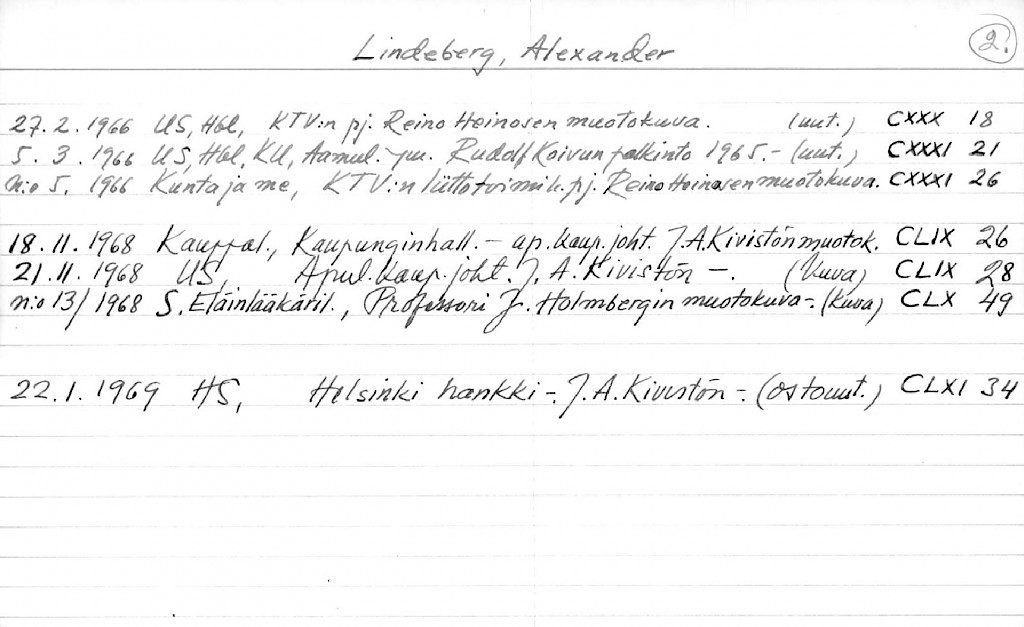 Lindeberg, Alexander
2.
27.2.1966 US, Hbl, KTV:n pj. Reino Heinosen muotokuva. (uut.) CXXX 18
5.3.1966 US, Hbl, KU, Aamul. ym. Rudolf Koivun palkinto 1965.- (uut.) CXXXI 21
n:o 5. 1966 Kunta ja me, KTV:n liittotoimik. pj. Reino Heinosen muotokuva. CXXXI 26
18.11.1968 Kauppal., Kaupunginhall. - ap. kaup. joht. J.A. Kivistön muotok. CLIX 26
21.11.1968 US, Apul. kaup. joht. J. A. Kivistön -. (kuva) CLIX 28
n:o 13/1968 S. Eläinlääkäril., Professori J. Holmbergin muotokuva -. (kuva) CLX 49
22.1.1969 HS, Helsinki hankki -. J.A. Kivistön -. (ostouut.) CLXI 34